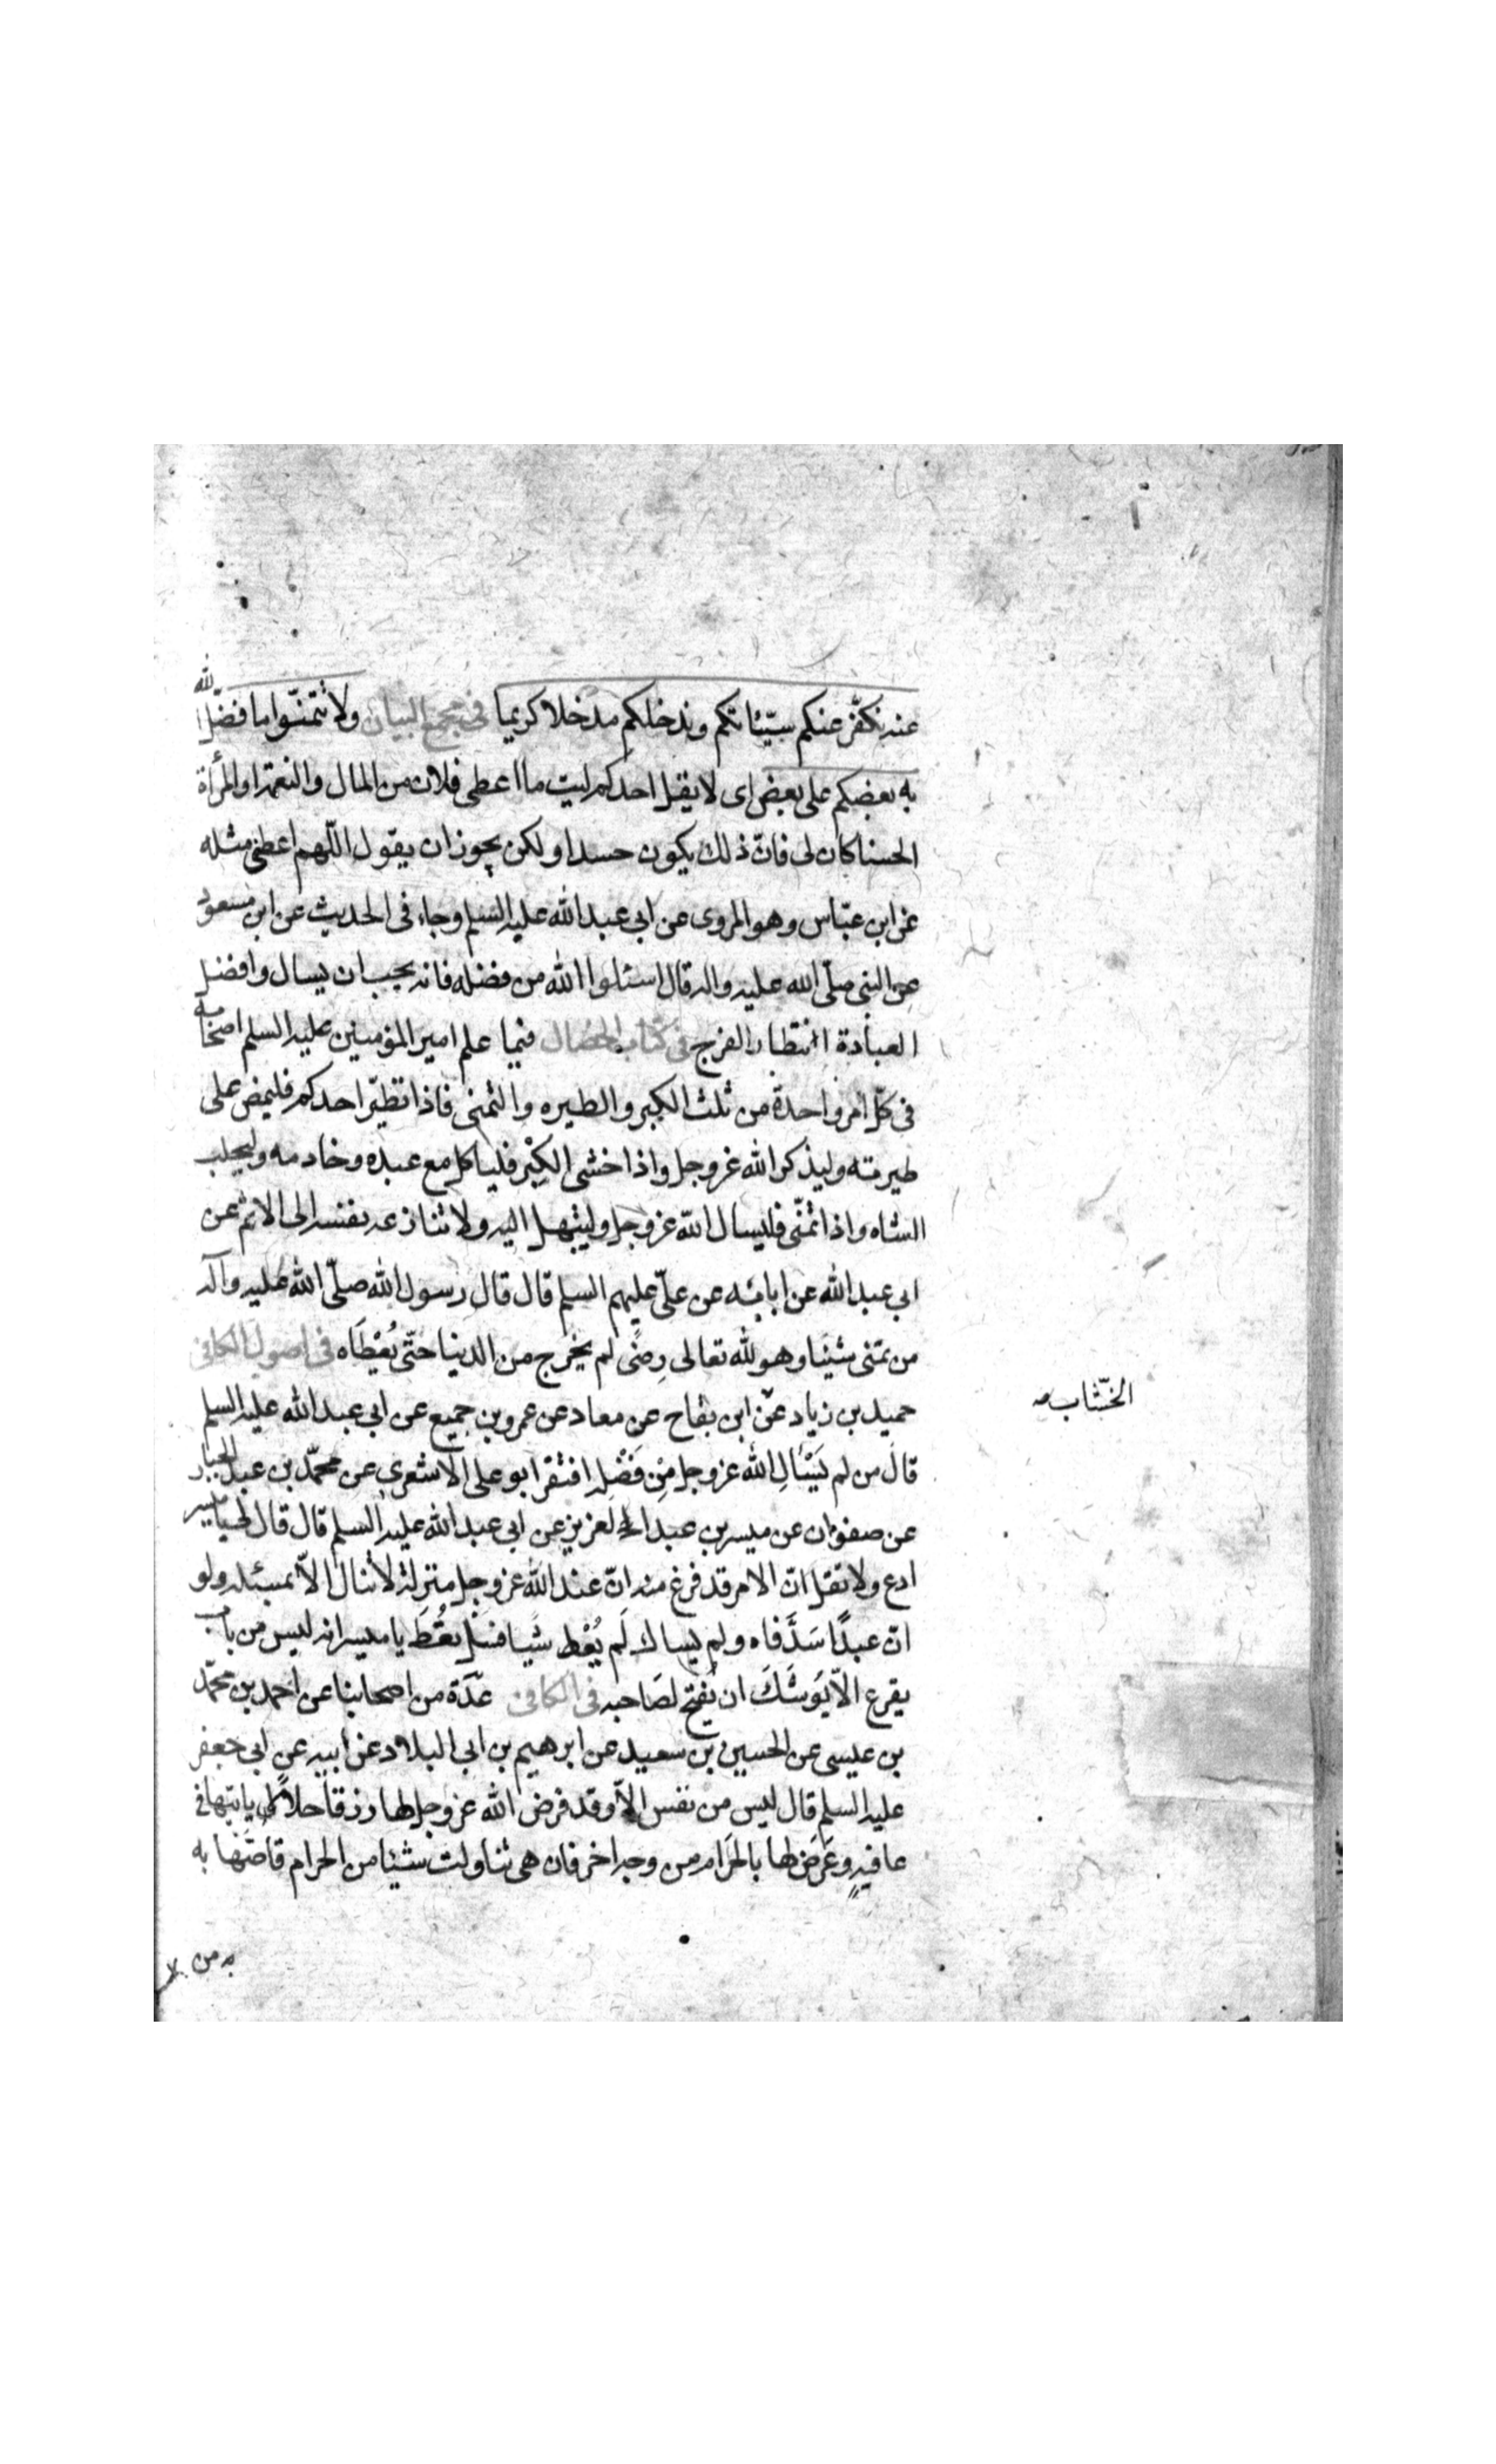 عنه نكفّر عنكم سيّئاتكم وندخلكم مدخلا كريما فى مجمع البيان ولا تتمنّوا ما فضّل الله
به بعضكم على بعض اى لا يقل احدكم ليت ما اعطى فلان من المال والنعمة او المرأة
الحسنا كان لى فانّ ذلك يكون حسدا ولكن يجوز ان يقول اللّهم اعطنى مثله
عن ابن عبّاس وهو المروى عن ابى عبد الله عليه السلم وجاء فى الحديث عن ابن مسعود
عن النبى صلّى الله عليه واله قال اسئلوا الله من فضله فانه يحب ان يسال وافضل
العبادة انتظار الفرج فى كتاب الخصال فيما علم امير المؤمنين عليه السلم اصحابه
فى كلّ امرء واحدة من ثلث الكبر والطيره والتمنى فاذا تطيّر احدكم فليمض على
طيرمته وليذكر الله عز وجل واذا خشى الكِبْر فلياكل مع عبده وخادمه وليحلب
الشاه واذا تمنّى فليسال الله عز وجل وليبتهل اليه ولا تنازعه نفسه الى الاثم عن
ابى عبد الله عن ابائه عن علىّ عليهم السلم قال قال رسول الله صلّى الله عليه وآله
من تمنى شيئا وهو لله تعالى رِضًى لم يخرج من الدنيا حتّى يُعْطَاه فى اصول الكافى
حميد بن زياد عن ابن بقاح عن معاد عن عمرو بن جميع عن ابى عبد الله عليه السلم
الخشّاب صه
قال من لم يَسْالِ الله عز وجل مِنْ فَضْلِه افتقر ابو على الاشعرى عن محمّد بن عبد الجبار
عن صفوان عن ميسر بن عبد العزيز عن ابى عبد الله عليه السلم قال قال لى يا ميسر
ادع ولا تقل انّ الامر قد فرغ منه انّ عند الله عز وجل منزلة لا تنال الاّ بمسئله ولو
انّ عبدًا سَدَّ فاه ولم يسال لَم يُعْط شيا فسَل تعُطَ يا ميسر انه ليس من باب
يقرع الاّ يُوشَكَ ان يُفتح لصَاحبه فى الكافى عدّة من اصحابنا عن احمد بن محمّد
بن عيسى عن الحسين بن سعيد عن ابرهيم بن ابى البلاد عن ابيه عن ابى جعفر
عليه السلم قال ليس من نفس الاّ وقد فرض الله عز وجل لها رزقا حلالا ياتيها فى
عافيهٍ وعَرَض لها بالحَرَام من وجه اخر فان هى تناولت شيئا من الحرام قاصّها به
به من